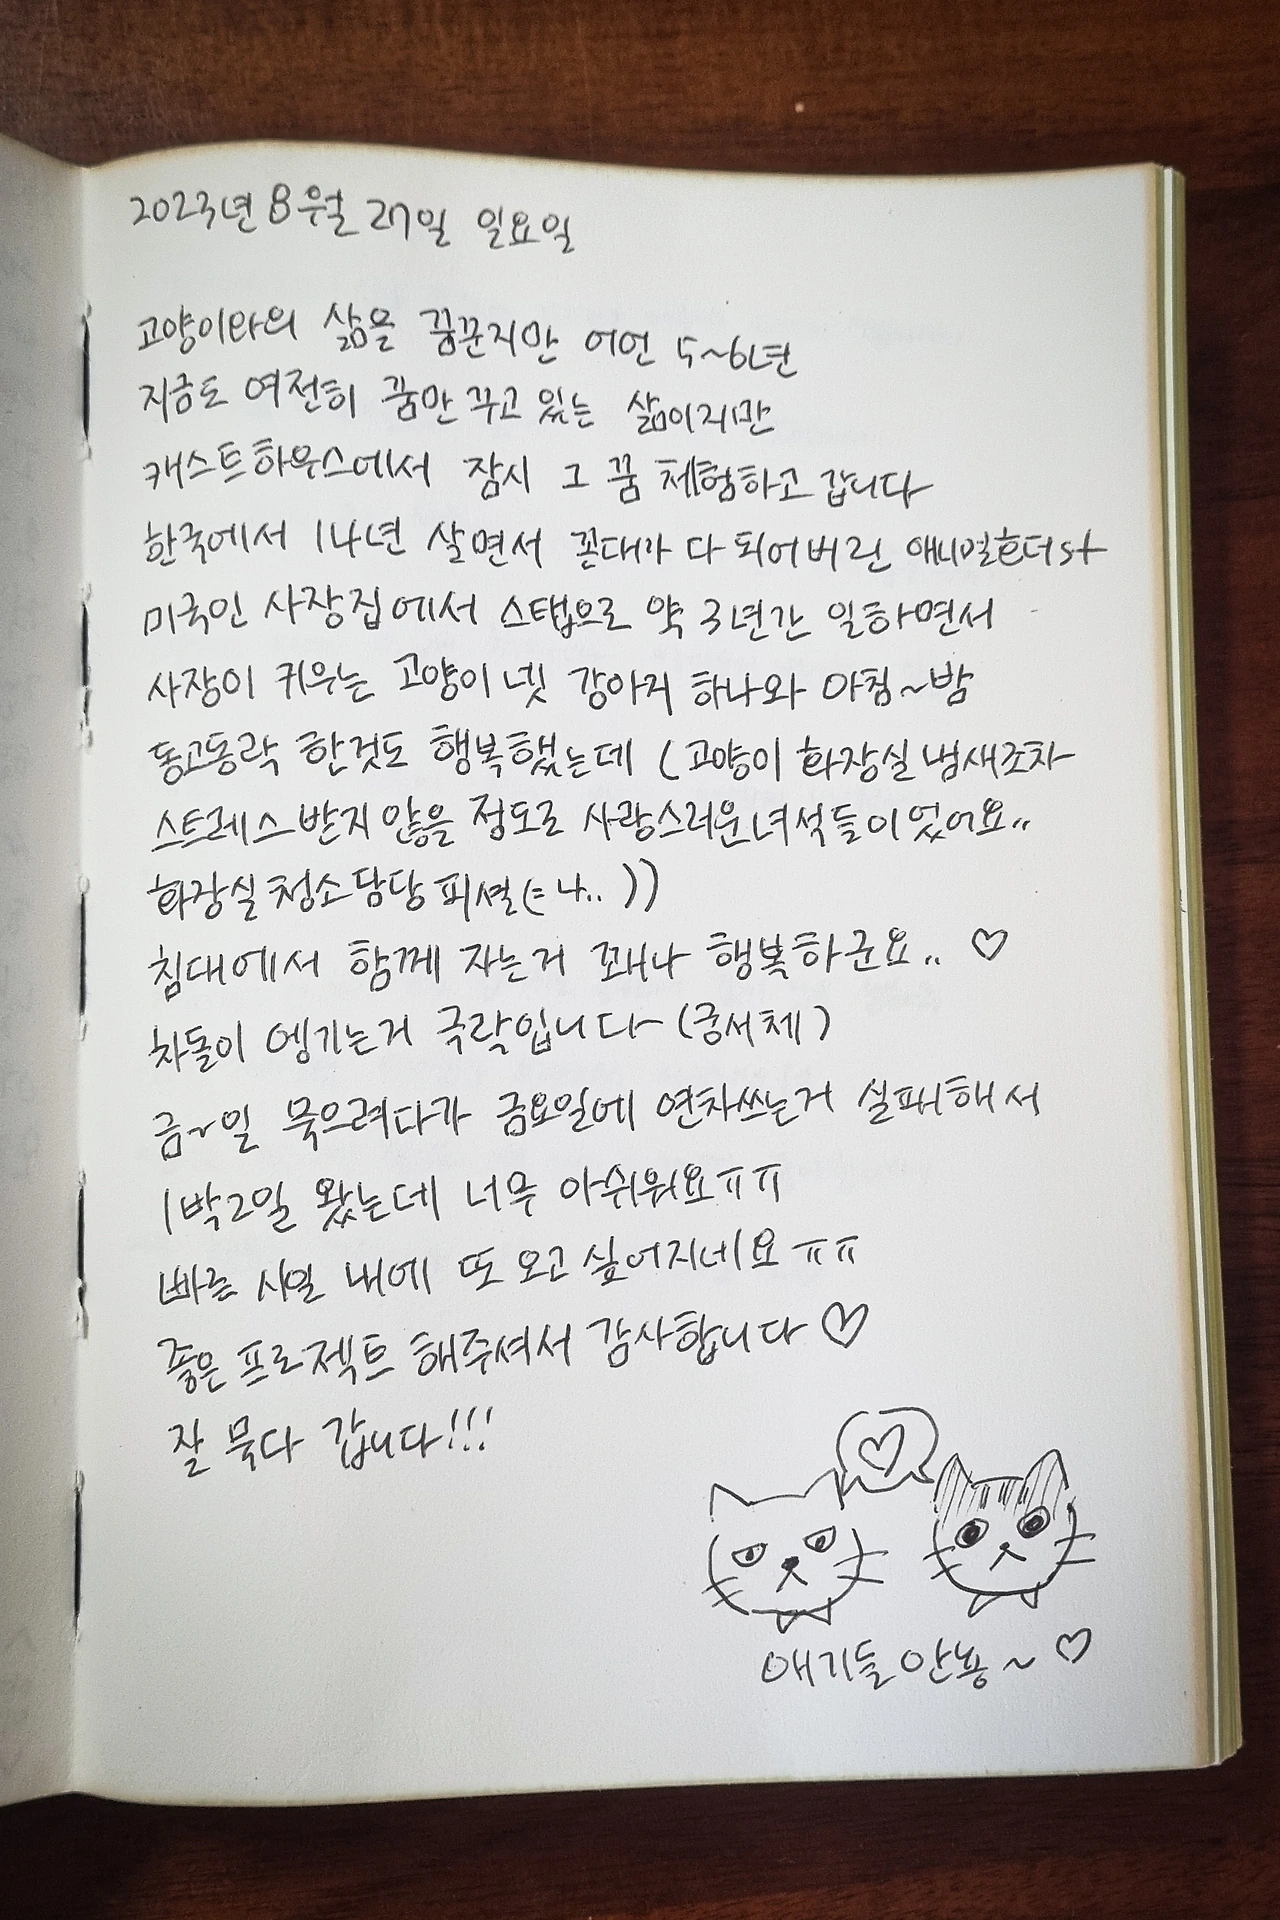 2023년 8월 27일 일요일
고양이와의 삶을 꿈꾼지만 어언 5~6년
지금도 여전히 꿈만 꾸고 있는 삶이지만
캐스트하우스에서 잠시 그 꿈 체험하고 갑니다
한국에서 14년 살면서 꼰대가 다 되어버린
미국인 사장집에서 스탭으로 약 3년간 일하면서
사장이 키우는 고양이 넷 강아지 하나와 아침~밤
동고동락 한것도 행복했는데 (고양이 화장실 냄새조차
스트레스 받지 않을 정도로 사랑스러운 녀석들이었어요..
화장실 청소 담당 피셜(=나.. ))
침대에서 함께 자는거 꽤나 행복하군요.. ♡
차돌이 엥기는거 극락입니다 (궁서체)
금~일 묵으려다가 금요일에 연차쓰는거 실패해서
1박2일 왔는데 너무 아쉬워요ㅠㅠ
빠른 시일 내에 또 오고 싶어지네요 ㅠㅠ
좋은 프로젝트 해주셔서 감사합니다 ♡
잘 묵다 갑니다!!!
♡
애기들 안뇽 ~ ♡